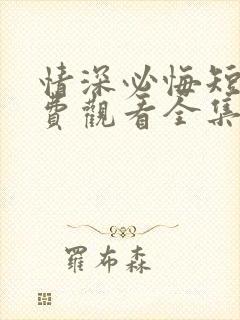 情深必悔短
費觀看全集
羅布森